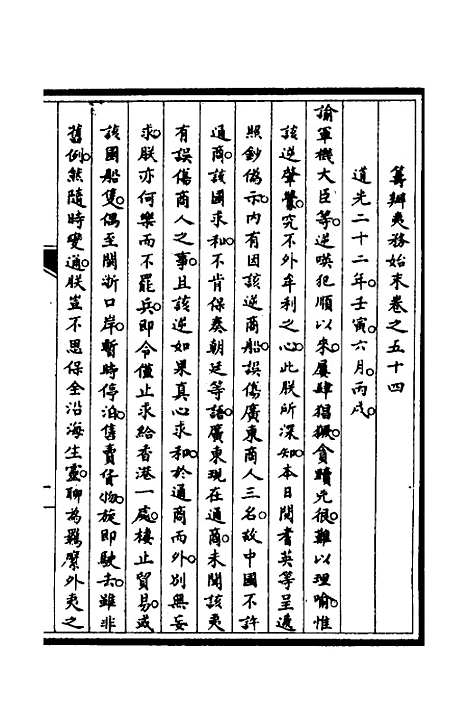 籌辦夷務始末卷之五十四
道光二十二年。壬寅。六月。丙戌。
諭軍機大臣等。逆㗆犯順以來。屢肆猖獗。貪黷兇很。難以理喻。惟
該逆肇釁。究不外牟利之心。此朕所深知。本日閱耆英等呈遞
照鈔偽示。內有因該逆商船。誤傷廣東商人三名。故中國不許
通商。該國求和。不肯保奏朝廷等語。廣東現在通商。未聞該夷
有誤傷商人之事。且該逆如果真心求和。於通商而外。別無妄
求。朕亦何樂而不罷兵。即令僅止求給香港一處。棲止貿易。或
該國船隻。偶至閩浙口岸。暫時停泊。售賣貨物。旋即駛去。雖非
舊例。然隨時變通。朕豈不思保全沿海生靈。聊為羈縻外夷之